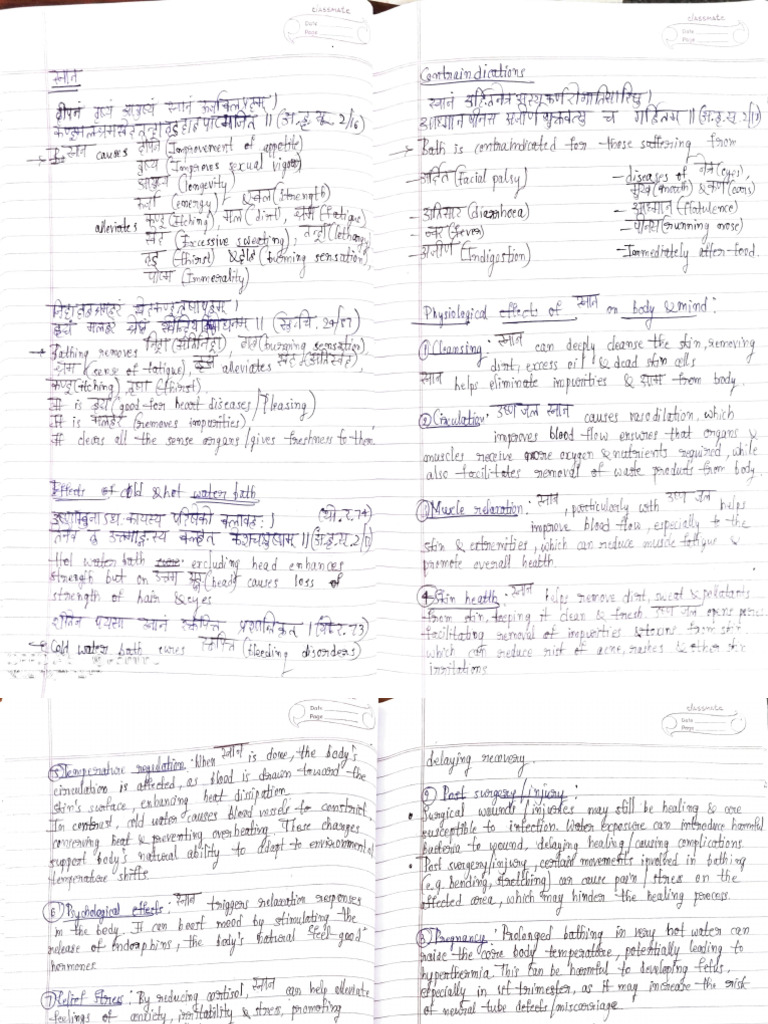 classmate
Date
Page
स्नान
दीपनं वृष्यं आयुष्यं स्नानं
(अ.हृ.सू. 2/16)
स्नान causes दीपन (Improvement of appetite)
वृष्य (Improves sexual vigour)
आयुष्य (longevity)
ऊर्जा (energy) & बल (strength)
alleviates कण्डू (Itching), मल (dirt), श्रम (fatigue)
स्वेद (Excessive sweating), तन्द्रा (lethargy)
तृड् (thirst) & दाह (burning sensation),
पाप्म (Immorality)
(सु.चि. 24/57)
Bathing removes निद्रा (अतिनिद्रा), दाह (burning sensation)
श्रम (sense of fatigue), alleviates स्वेद (अतिस्वेद),
कण्डू (itching) तृषा (thirst),
It is हृद्य (good for heart diseases / Pleasing)
It is मलहर (removes impurities),
It clears all the sense organs / gives freshness to them.
Effects of cold & hot water bath
उष्णाम्बुनाऽधः कायस्य परिषेको बलावहः । (यो.र. 74)
तेनैव तु उत्तमाङ्गस्य बलहृत् केशचक्षुषाम् ॥ (अ.हृ.सू. 2/17)
Hot water bath excluding head enhances
strength but on उत्तमाङ्ग (head) causes loss of
strength of hair & eyes
शीतेन पयसा स्नानं रक्तपित्त प्रशान्तिकृत् । (यो.र. 73)
Cold water bath cures रक्तपित्त (bleeding disorders)
classmate
Date
Page
Contraindications
स्नानं अर्दितनेत्रास्यकर्णरोगातिसारिषु ।
आध्मान पीनस अजीर्ण भुक्तवत्सु च गर्हितम् ॥ (अ.हृ.सू. 2/18)
Bath is contraindicated for those suffering from
- अर्दित (Facial palsy)
- diseases of नेत्र (eyes),
मुख (mouth) & कर्ण (ears)
- अतिसार (diarrhoea)
- आध्मान (flatulence)
- ज्वर (fever)
- पीनस (running nose)
- अजीर्ण (Indigestion)
- Immediately after food.
Physiological effects of स्नान on body & mind:
① Cleansing: स्नान can deeply cleanse the skin, removing
dirt, excess oil & dead skin cells
स्नान helps eliminate impurities & आम from body.
② Circulation: उष्ण जल स्नान causes vasodilation, which
improves blood flow ensures that organs &
muscles receive more oxygen & nutrients required, while
also facilitates removal of waste products from body.
③ Muscle relaxation: स्नान, particularly with उष्ण जल helps
improve blood flow, especially to the
skin & extremities, which can reduce muscle fatigue &
promote overall health
④ Skin health: स्नान helps remove dirt, sweat & pollutants
from skin, keeping it clean & fresh. उष्ण जल opens pores
facilitating removal of impurities & toxins from skin
which can reduce risk of acne, rashes & other skin
irritations
Date
Page
⑤ Temperature regulation: When स्नान is done, the body's
circulation is affected, as blood is drawn toward the
skin's surface, enhancing heat dissipation.
In contrast, cold water causes blood vessels to constrict,
conserving heat & preventing overheating. These changes
support body's natural ability to adapt to environmental
temperature shifts
⑥ Psychological effects: स्नान triggers relaxation responses
in the body. It can boost mood by stimulating the
release of endorphins, the body's natural "feel-good"
hormones
⑦ Relief Stress: By reducing cortisol, स्नान can help alleviate
feelings of anxiety, irritability & stress, promoting
classmate
Date
Page
delaying recovery.
② Post surgery/injury:
• Surgical wounds / injuries may still be healing & are
susceptible to infection. Water exposure can introduce harmful
bacteria to wound, delaying healing / causing complications.
• Post surgery/injury, certain movements involved in bathing
(e.g. bending, stretching) can cause pain / stress on the
affected area, which may hinder the healing process.
③ Pregnancy: Prolonged bathing in very hot water can
raise the core body temperature, potentially leading to
hyperthermia. This can be harmful to developing fetus,
especially in 1st trimester, as it may increase the risk
of neural tube defects/miscarriage